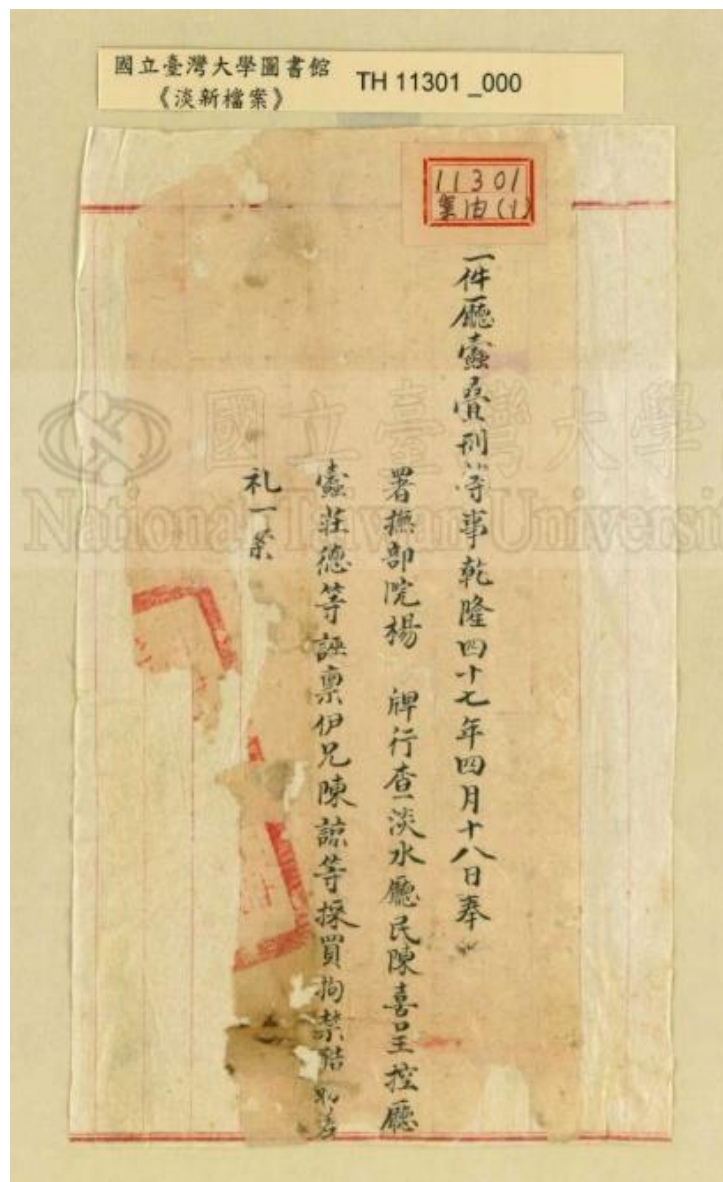 國立臺灣大學圖書館
《淡新檔案》
TH 11301 _000
11301
案由(1)
一件廳蠹疊刑等事乾隆四十七年四月十八日奉
署撫部院楊 牌行查淡水廳民陳喜呈控廳
蠹莊德等誣禀伊兄陳諒等採買拘禁
礼一案
國立臺灣大學
National Taiwan Universi